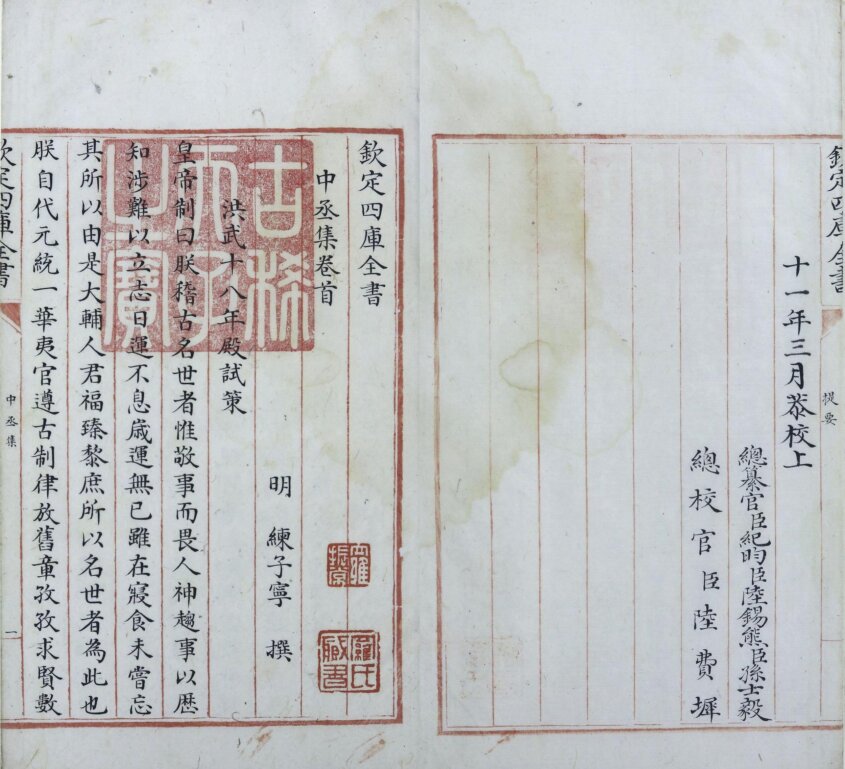 欽定四庫全書
提要
十一年三月恭校上
總纂官臣紀昀臣陸錫熊臣孫士毅
總校官臣陸費墀
欽定四庫全書
中丞集卷首
羅振常
羅氏藏書
明 練子寧 撰
洪武十八年殿試策
古稀天子之寶
皇帝制曰朕稽古名世者惟敬事而畏人神趨事以歴
知涉難以立志日運不息歳運無已雖在寢食未嘗忘
其所以由是大輔人君福臻黎庶所以名世者為此也
朕自代元統一華夷官遵古制律放舊章孜孜求賢數
欽定四庫全書
中丞集
一